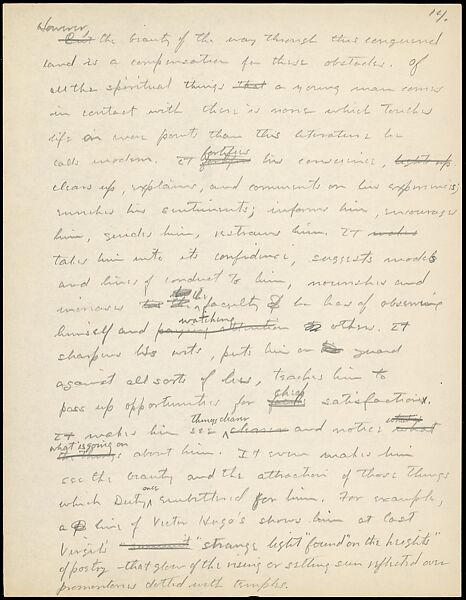 14.
However,
But the beauty of the way through this conquered
land is a compensation for these obstacles. Of
all the spiritual things that a young man comes
in contact with there is none which touches
life on more points than this literature he
calls modern. It fortifies his conscience, lights up
clears up, explains, and comments on his experiences;
enriches his sentiments; informs him, encourages
him, guides him, restrains him. It makes
takes him into its confidence, suggests models
and lines of conduct to him, nourishes and
increases the faculty he has of observing
himself and paying attention watching others. It
sharpens his wits, puts him on guard
against all sorts of lies, teaches him to
pass up opportunities for cheap satisfactions.
It makes him see things clearer clearer and notice what
what is going on about him. It even makes him
see the beauty and the attraction of those things
which Duty once embittered for him. For example,
a line of Victor Hugo's shows him at last
Virgil's "strange light found on the heights"
of poetry - that glow of the rising or setting sun reflected over
promontories dotted with temples.